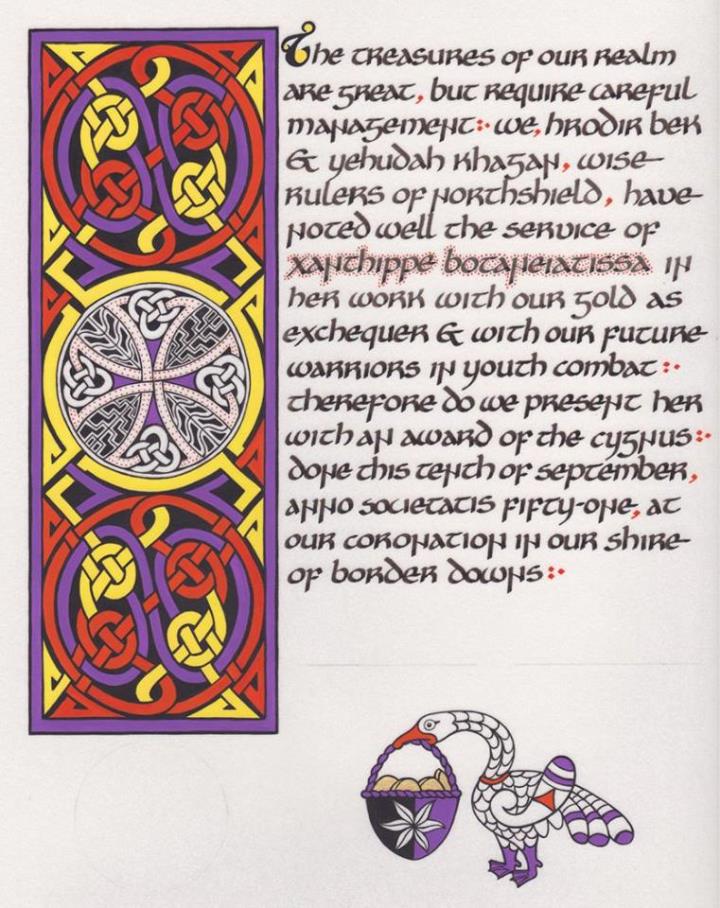 The treasures of our realm
are great, but require careful
management:· we, hrodir bek
& yehudah khagan, wise
rulers of northshield, have
noted well the service of
xanthippe botaneiatissa in
her work with our gold as
exchequer & with our future
warriors in youth combat:·
therefore do we present her
with an award of the cygnus:·
done this tenth of september,
anno societatis fifty-one, at
our coronation in our shire
of border downs:·